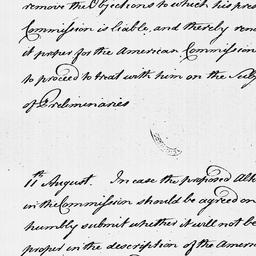 remove the Objections to which his pres
Commission is liable, and thereby rend
it proper for the American Commission
to proceed to treat with him on the Subj
of Preliminaries
11th August. In case the proposed Alt
in the Commission should be agreed on
humbly submit whether it will not be
proper in the description of the Amer